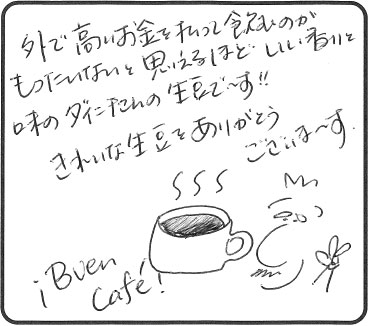 外で高いお金を払って飲むのが
もったいないと思えるほどいい香りと
味のダイニたんの生豆で〜す!!
きれいな生豆をありがとう
ございま〜す.
¡Buen
Café!